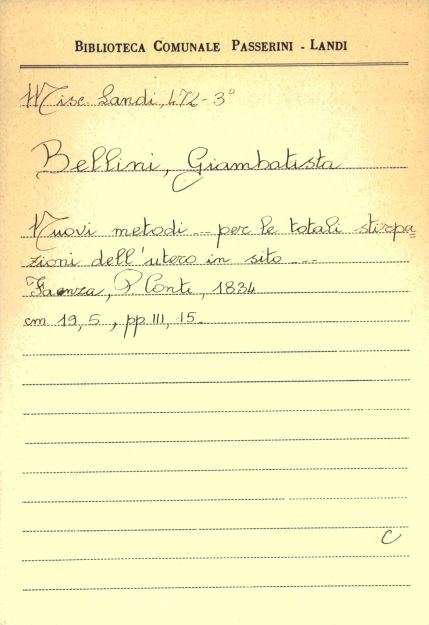 BIBLIOTECA COMUNALE PASSERINI - LANDI
Misc. Landi, 472-3°
Bellini, Giambatista
Nuovi metodi ... per le totali stirpa=
zioni dell'utero in sito ...
Faenza, P. Conti, 1834
cm 19,5, pp. III, 15.
C